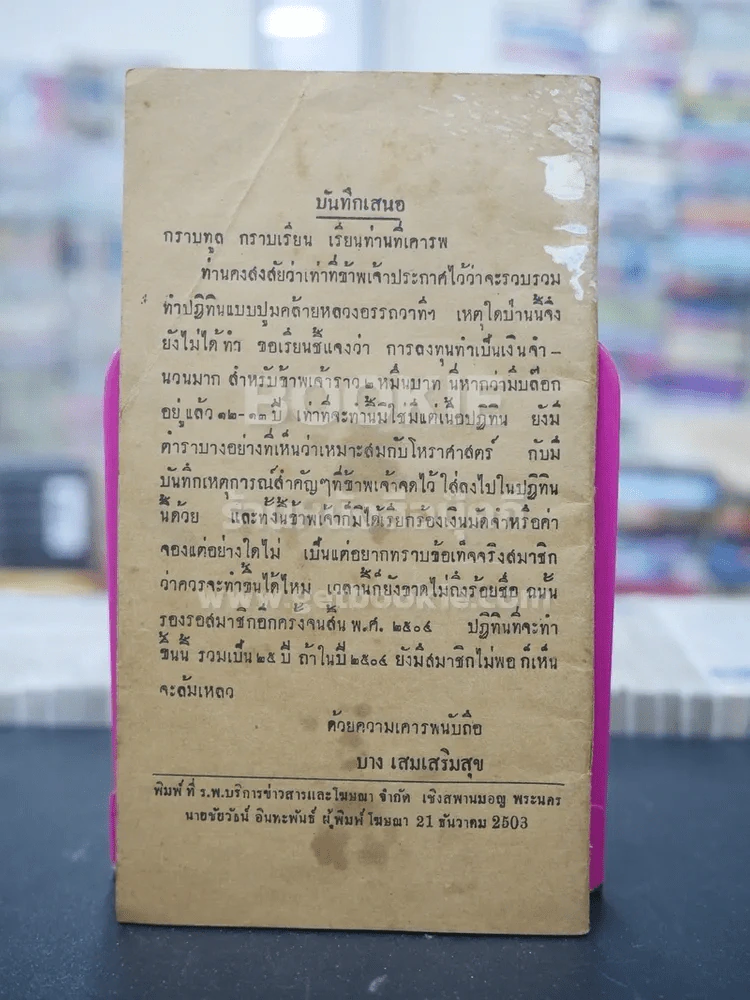 บันทึกเสนอ
กราบทูล กราบเรียน เรียนท่านที่เคารพ
ท่านคงสงสัยว่าเท่าที่ข้าพเจ้าประกาศไว้ว่าจะรวบรวม
ทำปฏิทินแบบปูมคล้ายหลวงอรรถวาทีฯ เหตุใดป่านนี้จึง
ยังไม่ได้ทำ ขอเรียนชี้แจงว่า การลงทุนทำเป็นเงินจำ–
นวนมาก สำหรับข้าพเจ้าราว ๒ หมื่นบาท นี่หากว่ามีบล๊อก
อยู่แล้ว ๑๒–๑๓ ปี เท่าที่จะทำนี้มิใช่มีแต่เนื้อปฏิทิน ยังมี
ตำราบางอย่างที่เห็นว่าเหมาะสมกับโหราศาสตร์ กับมี
บันทึกเหตุการณ์สำคัญๆที่ข้าพเจ้าจดไว้ ใส่ลงไปในปฏิทิน
นี้ด้วย และทั้งนี้ข้าพเจ้าก็มิได้เรียกร้องเงินมัดจำหรือค่า
จองแต่อย่างใดไม่ เป็นแต่อยากทราบข้อเท็จจริงสมาชิก
ว่าควรจะทำขึ้นได้ไหม เวลานี้ก็ยังขาดไม่ถึงร้อยชื่อ ฉนั้น
รองรอสมาชิกอีกครั้งจนสิ้น พ.ศ. ๒๕๐๔ ปฏิทินที่จะทำ
ขึ้นนี้ รวมเป็น ๒๕ ปี ถ้าในปี ๒๕๐๔ ยังมีสมาชิกไม่พอ ก็เห็น
จะล้มเหลว
ด้วยความเคารพนับถือ
บาง เสมเสริมสุข
พิมพ์ที่ ร.พ.บริการข่าวสารและโฆษณา จำกัด เชิงสพานมอญ พระนคร
นายชัยวัธน์ อินทะพันธ์ ผู้พิมพ์โฆษณา 21 ธันวาคม 2503
BOOKIE
www.getbookie.com